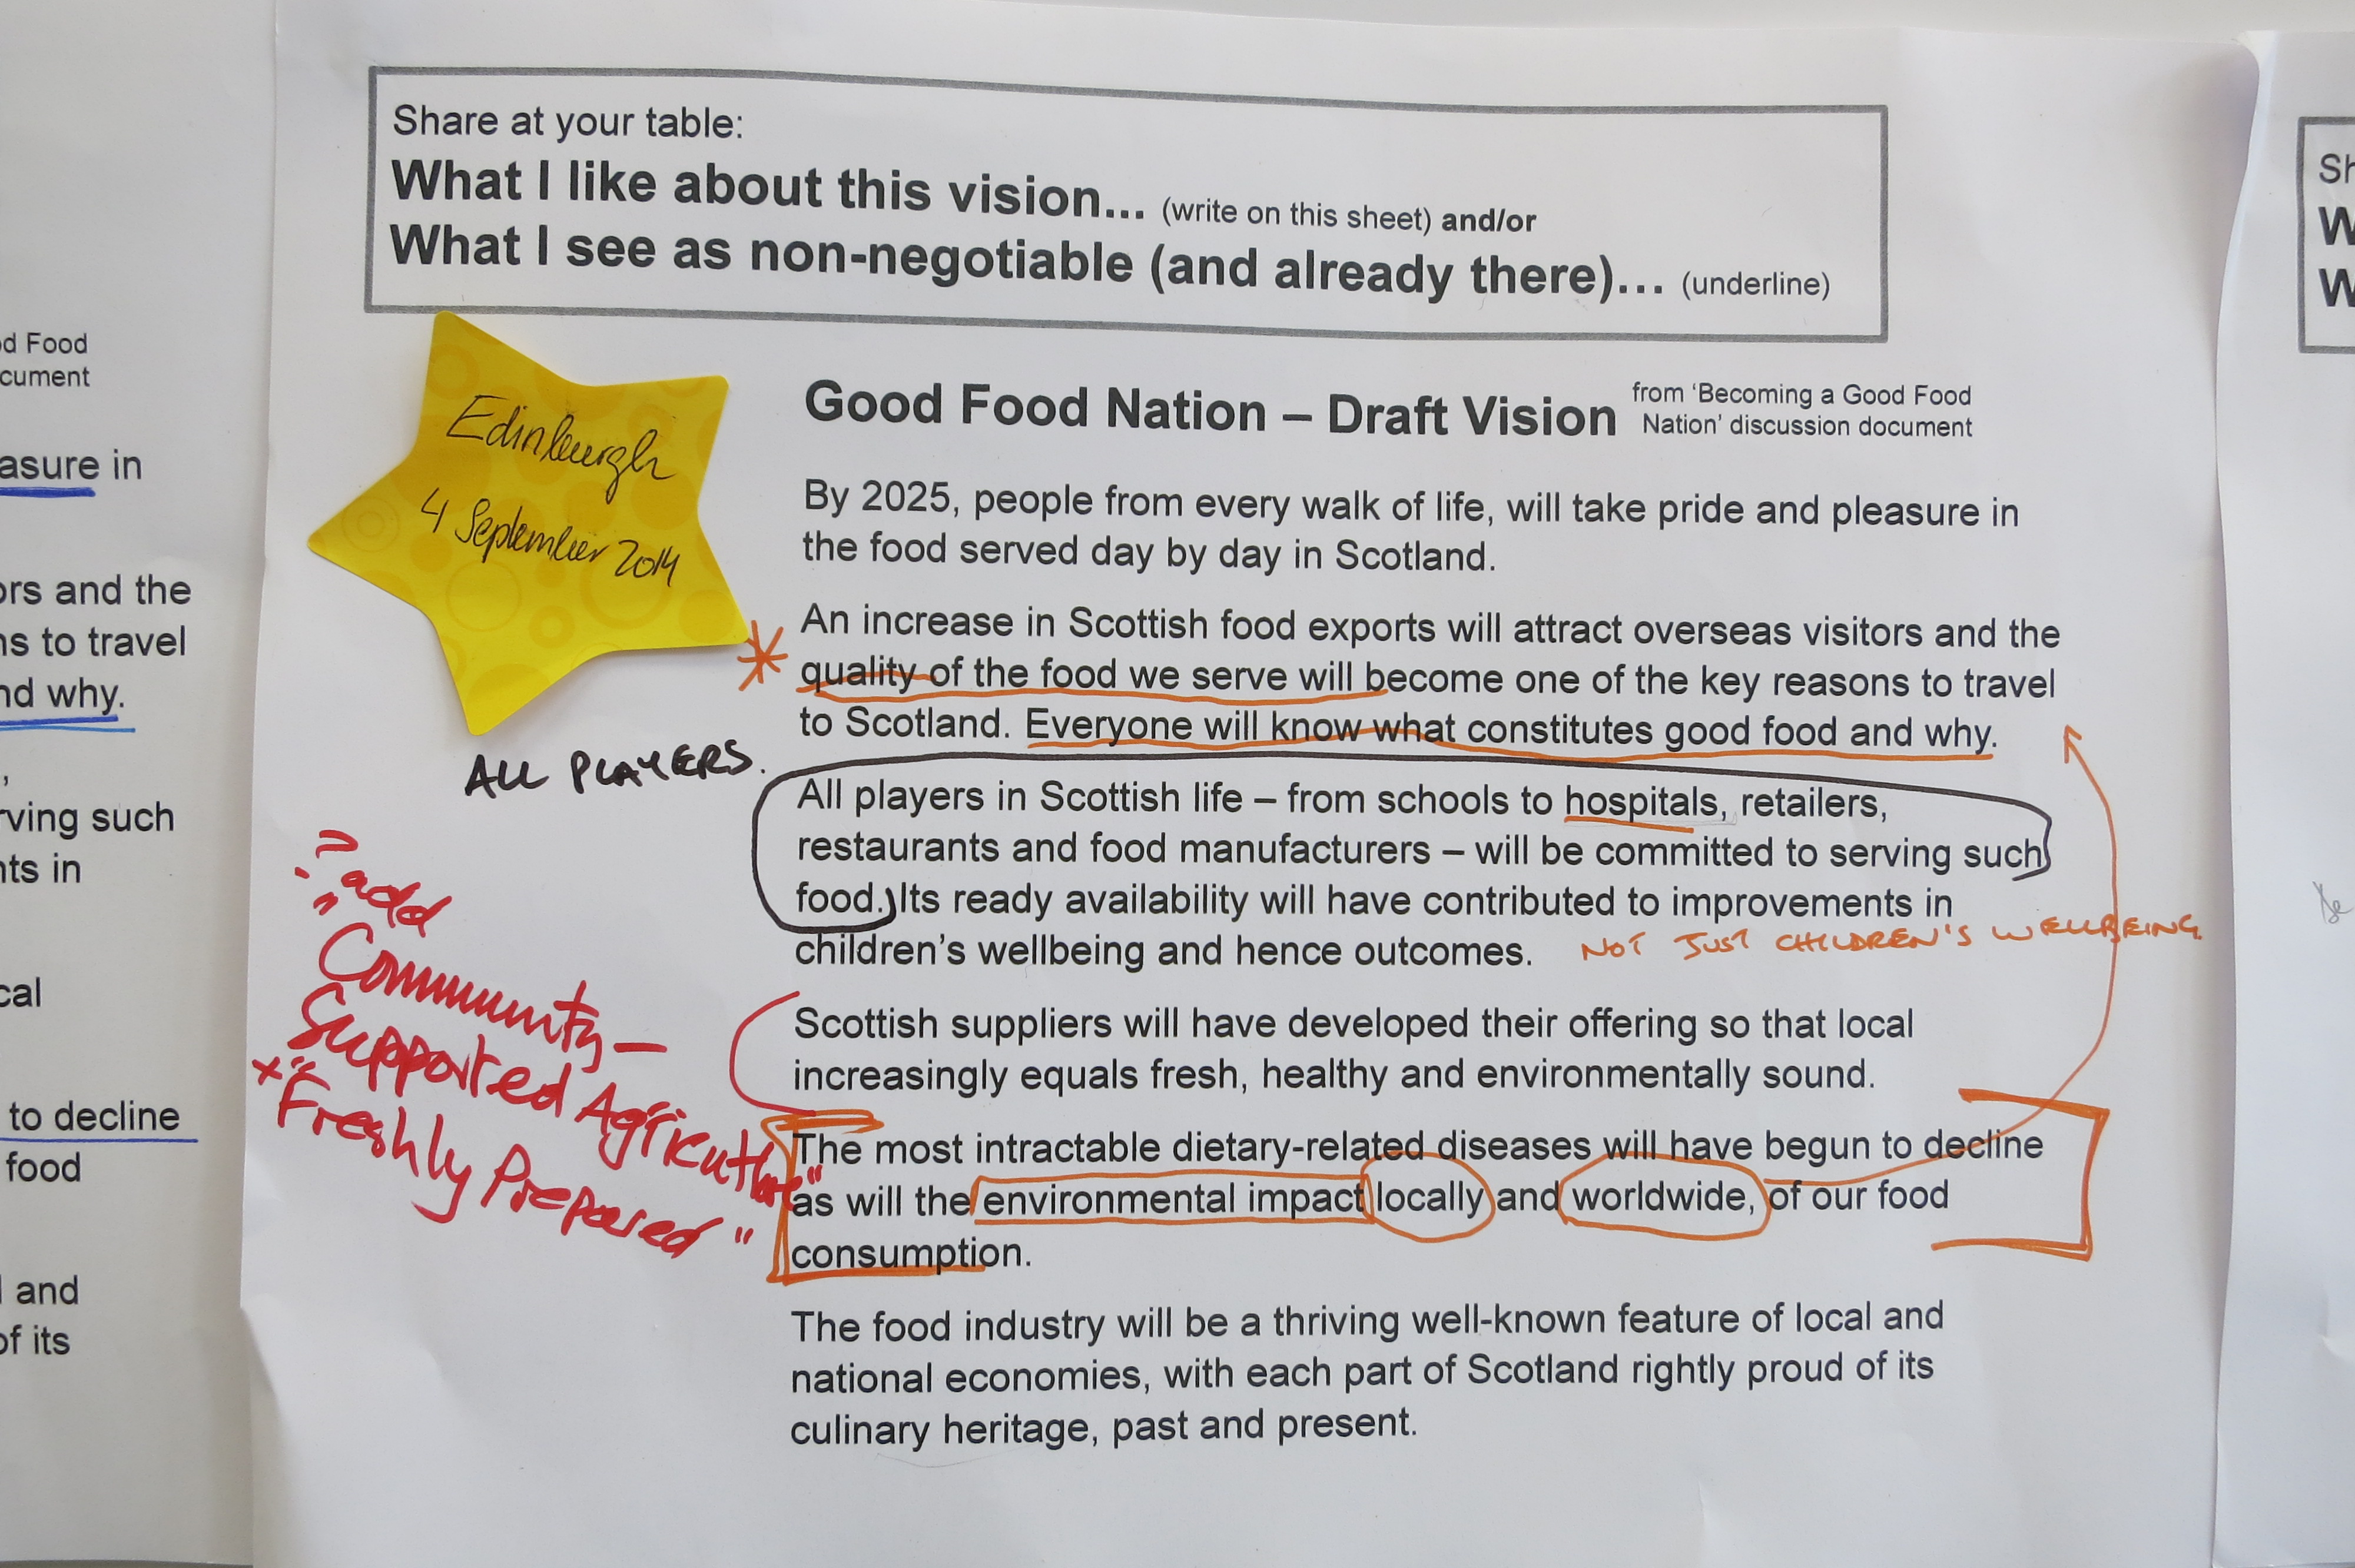 Share at your table:
What I like about this vision... (write on this sheet) and/or
What I see as non-negotiable (and already there)... (underline)
Edinburgh
4 September 2014
Good Food Nation – Draft Vision
from 'Becoming a Good Food
Nation' discussion document
By 2025, people from every walk of life, will take pride and pleasure in
the food served day by day in Scotland.
An increase in Scottish food exports will attract overseas visitors and the
quality of the food we serve will become one of the key reasons to travel
to Scotland. Everyone will know what constitutes good food and why.
ALL PLAYERS.
All players in Scottish life – from schools to hospitals, retailers,
restaurants and food manufacturers – will be committed to serving such
food. Its ready availability will have contributed to improvements in
children's wellbeing and hence outcomes.
NOT JUST CHILDREN'S WELLBEING.
? add
"Community-
Supported Agriculture"
+ "Freshly Prepared"
Scottish suppliers will have developed their offering so that local
increasingly equals fresh, healthy and environmentally sound.
The most intractable dietary-related diseases will have begun to decline
as will the environmental impact locally and worldwide, of our food
consumption.
The food industry will be a thriving well-known feature of local and
national economies, with each part of Scotland rightly proud of its
culinary heritage, past and present.
d Food
cument
asure in
ors and the
ns to travel
nd why.
,
rving such
nts in
cal
to decline
food
and
of its
Sh
W
W